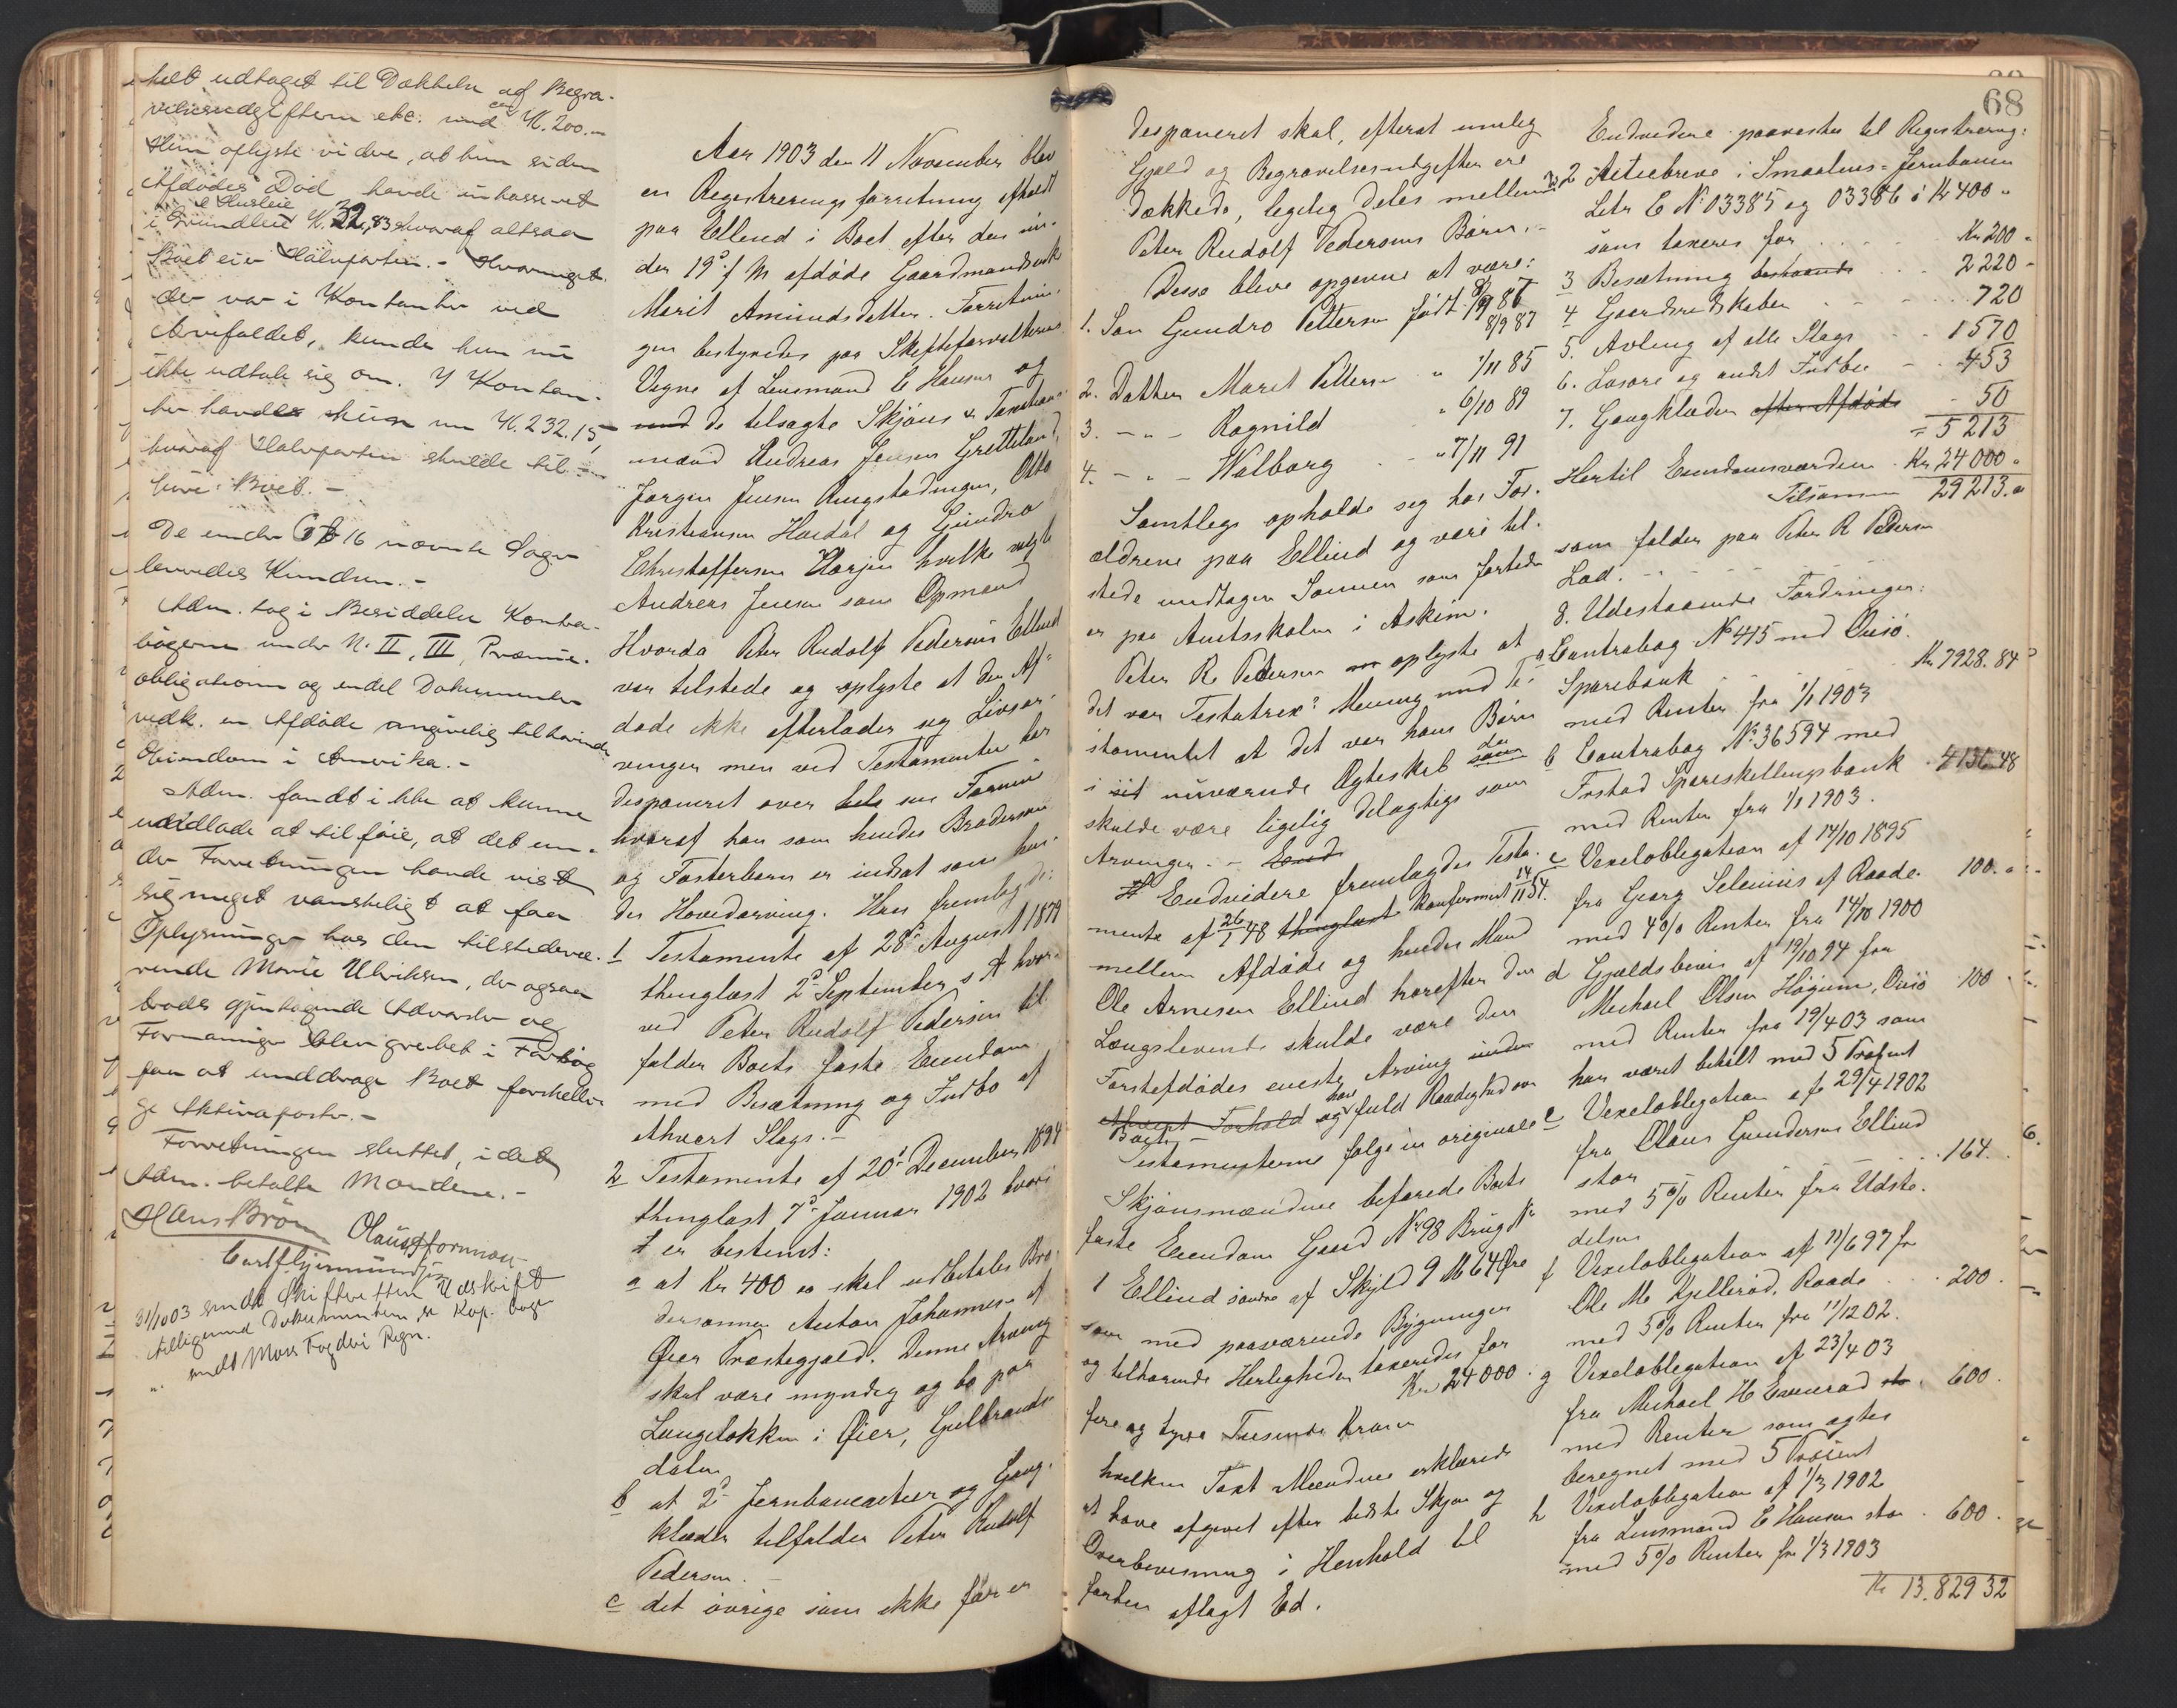 helt udtaget til Dækkelse af Begra-
velsesudgifterne etc. med ca K. 200.-
Hun oplyste videre, at hun siden
Afdødes Død havde inkasseret
i Grundleie & Husleie K. 32,83 hvoraf altsaa
Boet eier Halvparten. - Hvormeget
der var i Kontanter ved
Arvefaldet, kunde hun nu
ikke udtale sig om. I Kontan-
ter havde hun nu K. 232.15,
hvoraf Halvparten skulde til-
høre Boet. -
De under Ob 16 nævnte Sager
leveredes Kunden. -
Adm. tog i Besiddelse Kontra-
bøgerne under N. II, III, Præmie-
obligationen og endel Dokumenter
vedk. en Afdøde angivelig tilhørende
Eiendom i Amerika. -
Adm. fandt ikke at kunne
undlade at tilføie, at det un-
der Forretningen havde vist
sig meget vanskeligt at faa
Oplysninger hos den tilstedevæ-
rende Marie Ulriksen, der ogsaa
trods gjentagende Advarsler og
Formaninger blev grebet i Forsøg
paa at unddrage Boet forskelli-
ge Aktivaposter. -
Forretningen sluttet, idet
Adm. betalte Mændene. -
Hans Brøn
Olaus Hornnes
Carl Hjermundsen
31/10 03 sendt Skifteretten Udskrift
tilligemed Dokumenter, se Kop. bog
" sendt Moss Fogderi Regn.
Aar 1903 den 11 November blev
en Registreringsforretning afholdt
paa Ellind i Boet efter den un-
der 19de f M afdøde Gaardmandsenke
Marit Amundsdatter. Forretnin-
gen bestyredes paa Skifteforvalterens
Vegne af Lensmand E Hansen og
med de tilsagte Skjøns & Taxations-
mænd Andreas Jensen Gretteland,
Jørgen Jensen Ringstadengen, Otto
Kristiansen Haadal og Gundro
Christoffersen Harjen hvilke valgte
Andreas Jensen som Opmand
Hvorda Peter Rudolf Pedersen Ellind
var tilstede og oplyste at den Af-
døde ikke efterlader sig Livsar-
vinger men ved Testamenter har
desponeret over hele sin Formue
hvoraf han som hendes Brodersøn
og Fosterbarn er indsat som hen-
des Hovedarving. Han fremlagde:
1 Testamente af 28de August 1879
thinglæst 2den September s A hvor-
ved Peter Rudolf Pedersen til
falder Boets faste Eiendom
med Besætning og Indbo af
ethvert Slags. -
2 Testamente af 20de December 1894
thinglæst 7de Januar 1902 hvori
er bestemt:
a at Kr 400 skal udbetales Bro-
dersønnen Anton Johannesen af
Øier Præstegjæld. Denne Arving
skal være myndig og bo paa
Langeløkken i Øier, Gulbrands-
dalen
b at 2de Jernbaneactier og Gang-
klæder tilfalder Peter Rudolf
Pedersen. -
c det øvrige som ikke før er
68
desponeret skal, efterat mulig
Gjæld og Begravelsesudgifter ere
dækkede, ligelig deles mellem
Peter Rudolf Pedersens Børn. -
Disse bleve opgivne at være:
1. Søn Gundro Petterson født 8/9 87
8/9 87
2. Datter Marit Petterson " 1/11 85
3. - " - Ragnild " 6/10 89
4. - " - Walborg " 7/11 91
Samtlige opholde seg hos For-
ældrene paa Ellind og være til-
stede undtagen Sønnen som fortiden
er paa Amtsskolen i Askim.
Peter R Pedersen oplyste at
det var Testatrix's Mening med Te-
stamentet at det var hans Børn
i sit nuværende Ægteskab som der
skulde være ligelig delagtige som
Arvinger. - End
Endvidere fremlagdes Testa-
mente af 26/1 48 thinglæst konfirmeret 14/11 54.
mellem Afdøde og hendes Mand
Ole Arnesen Ellind hvorefter den
Længstlevende skulde være den
Førstafdødes eneste Arving under
ethvert Forhold og have fuld Raadighed over
Boet. -
Testamenterne følge in originale
Skjønsmændene befarede Boets
faste Eiendom Gaard Nr 98 Brug Nr
1 Ellind søndre af Skyld 9 M 64 Øre
som med paaværende Bygninger
og tilhørende Herligheder taxeredes for
Kr 24000.
fire og tyve Tusinde Kroner
hvilken Taxt Mændene erklærede
at have afgivet efter bedste Skjøn og
Overbevisning i Henhold til
forhen aflagt Ed.
Endvidere paavistes til Registrering:
2 Actiebreve i Smaalens-Jernbanen
Litr E No 03385 og 03386 á Kr 400.
som taxeres for Kr 200 "
3 Besætning bestaaende 2220 -
4 Gaardsredskaber 720
5. Avling af alle Slags 1570
6. Løsøre og andet Indbo 453
7. Gangklæder efter Afdøde 50
= 5213
Hertil Eiendomsværdien Kr 24000.
Tilsammen 29213.
som falder paa Peter R Pedersen
Lod.
8. Udestaaende Fordringer:
a Contrabog No 415 med Onsø
Sparebank Kr 7928.84
med Renter fra 1/1 1903
b Contrabog No 36594 med
Frstad Spareskillingsbank 4136.48
med Renter fra 1/1 1903.
c Vexelobligation af 14/10 1895
fra Georg Selenius af Raade 100.
med 4 % Renter fra 14/10 1900
d Gjældsbevis af 19/10 94 fra
Michael Olsen Høgum, Onsø 100
med Renter fra 19/4 03 som
har været betalt med 5 Prosent
e Vexelobligation af 29/4 1902
fra Olaus Gundersen Ellind
stor 164.
med 5 % Renter fra Udste-
delsen
f Vexelobligation af 11/6 97 fra
Ole M Kjellerød, Raade 200.
med 5 % Renter fra 11/12 02.
g Vexelobligation af 23/4 03
fra Michael H Evenrød 600.
med Renter som agtes
beregnet med 5 Prosent
h Vexelobligation af 1/3 1902
fra Lensmand E Hansen stor 600.
med 5 % Renter fra 1/3 1903
Kr 13.829 32